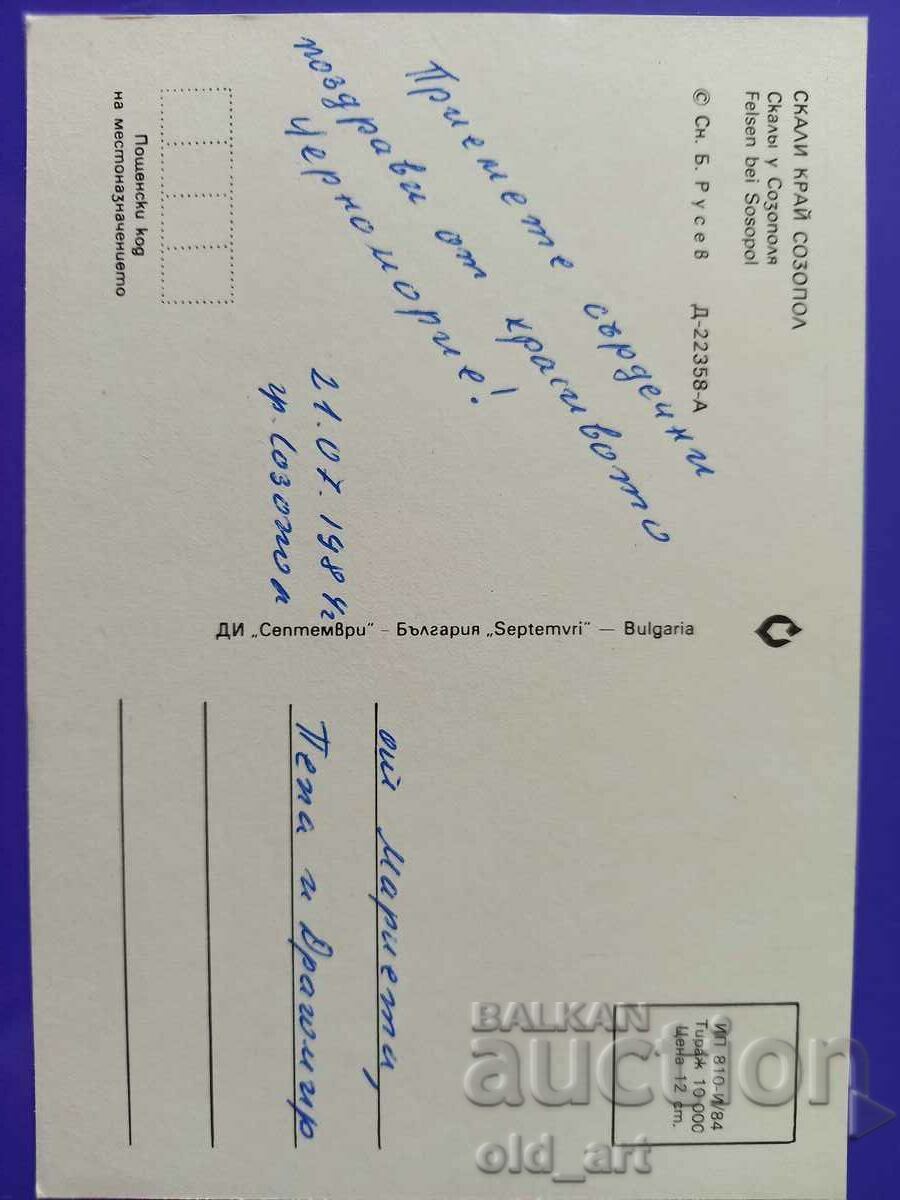 СКАЛИ КРАЙ СОЗОПОЛ
Скалы у Созополя
Felsen bei Sosopol
© Сн. Б. Русев Д-22358-А
Приемете сърдечни
поздрави от красивото
Черноморие!
21.07.1984г
гр. Созопол
Пощенски код
на местоназначението
ДИ „Септември" - България „Septemvri" — Bulgaria
ИП 810-И/84
Тираж 10 000
Цена 12 ст.
от Мариета,
Пепа и Драгомир
BALKAN
auction
old_art